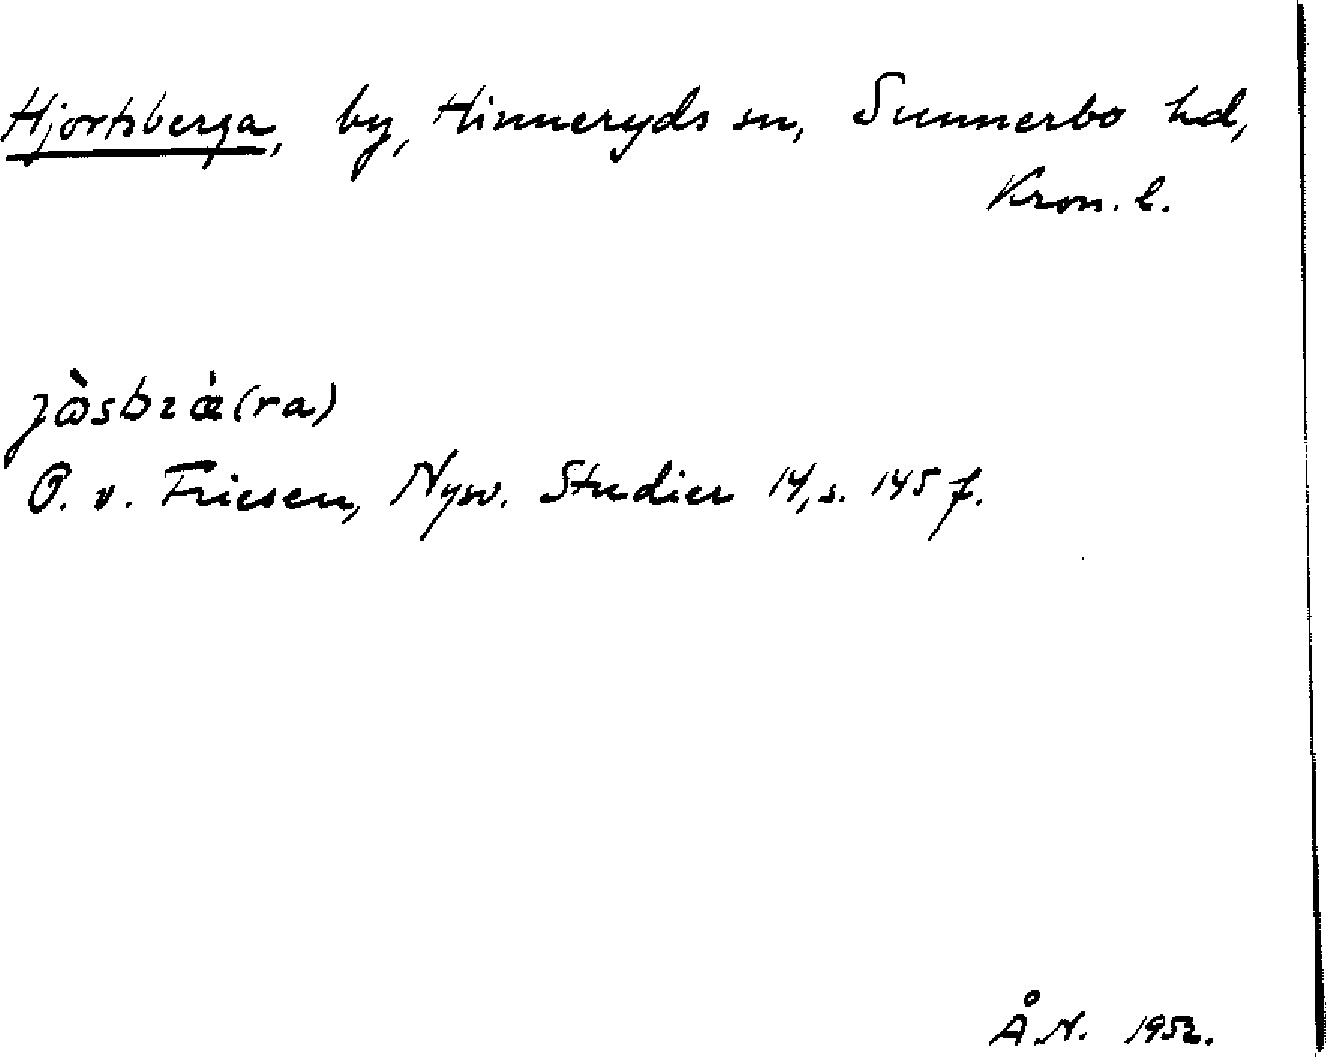 Hjortsberga, by, Hinneryds sn, Sunnerbo hd,
Kron. l.
jòsbræ̀(ra)
O. v. Friesen, Nysv. Studier 14, s. 145 f.
Å.N. 1952.